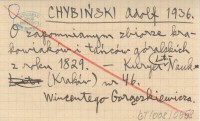 CHYBIŃSKI Adolf 1936.
O zapomnianym zbiorze kra-
kowiaków i tańców góralskich
z roku 1829. — Kuryer Lit. Nauk.
(Kraków) nr 46.
Wincentego Gorączkiewicza.